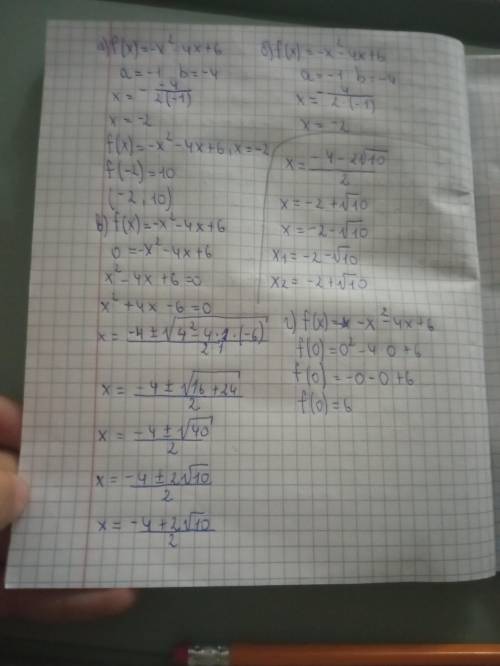 а) f(x)=-x²-4x+6
a=-1, b=-4
x= - -4/2(-1)
x=-2
f(x)=-x²-4x+6, x=-2
f(-2)=10
(-2, 10)
б) f(x)=-x²-4x+6
a=-1, b=-4
x= - -4/2·(-1)
x=-2
в) f(x)=-x²-4x+6
0=-x²-4x+6
x²-4x+6=0
x²+4x-6=0
x= -4±√4²-4·1·(-6)/2·1
x= -4±√16+24/2
x= -4±√40/2
x= -4±2√10/2
x= -4+2√10/2
x= -4-2√10/2
x=-2+√10
x=-2-√10
x₁=-2-√10
x₂=-2+√10
г) f(x)= -x²-4x+6
f(0)=0²-4·0+6
f(0)=-0-0+6
f(0)=6